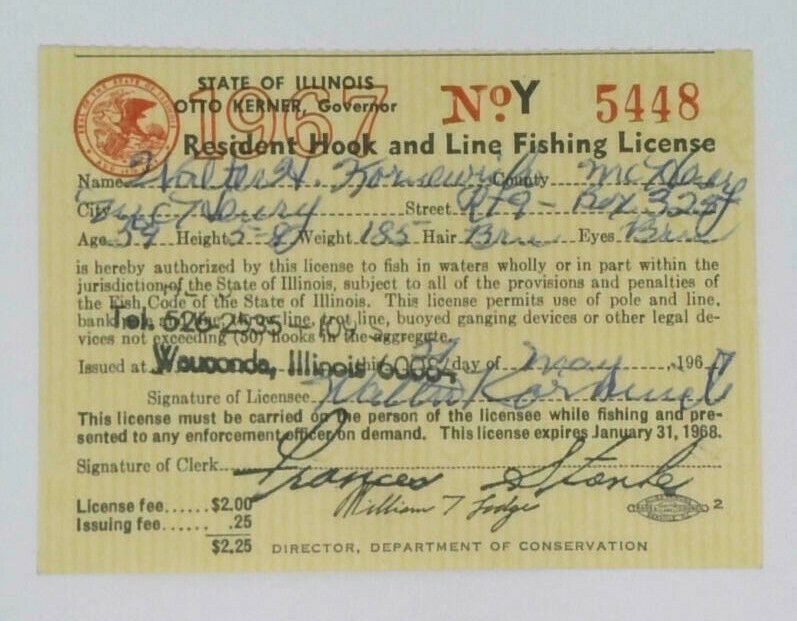 STATE OF ILLINOIS
OTTO KERNER, Governor
1967
No Y 5448
Resident Hook and Line Fishing License
Name Walter H. County McHenry
City McHenry Street Rt 9 - Box 328
Age 59 Height 5-8 Weight 185 Hair Brn Eyes Brn
is hereby authorized by this license to fish in waters wholly or in part within the
jurisdiction of the State of Illinois, subject to all of the provisions and penalties of
the Fish Code of the State of Illinois. This license permits use of pole and line,
line, trot line, buoyed ganging devices or other legal de-
vices not exceeding (50) hooks in the aggregate.
Tel. 526-2535
Issued at Wauconda, Illinois this day of May, 1967
Signature of Licensee Walter
This license must be carried on the person of the licensee while fishing and pre-
sented to any enforcement officer on demand. This license expires January 31, 1968.
Signature of Clerk Frances
License fee......$2.00
Issuing fee...... .25
$2.25
William T Lodge
2
DIRECTOR, DEPARTMENT OF CONSERVATION